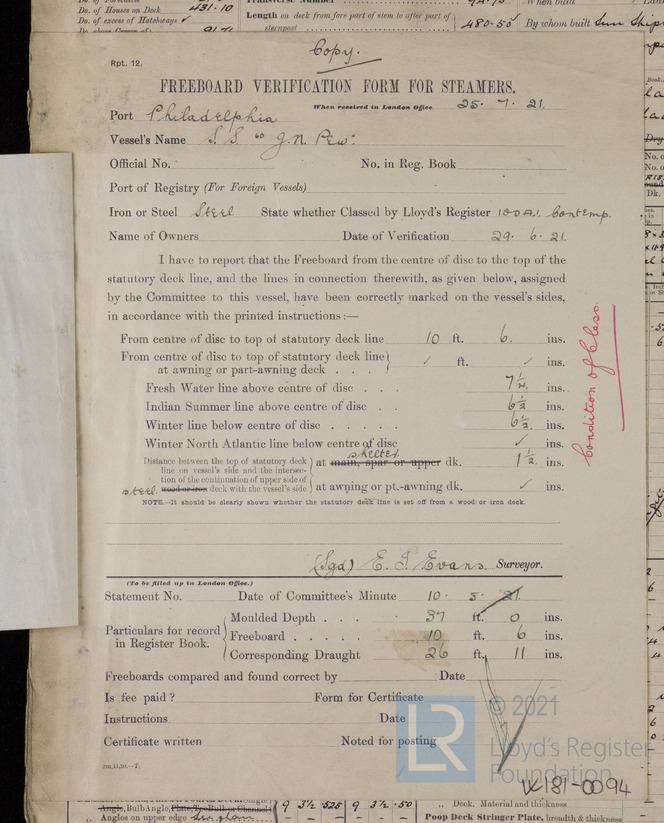 Do. of Houses on Deck 431.10
Do. of excess of Hatchways ✓
Length on deck from fore part of stem to after part of sternpost 480.50
When built
By whom built Sun Ship
Copy.
Rpt. 12.
FREEBOARD VERIFICATION FORM FOR STEAMERS.
When received in London Office. 25. 7. 21.
Port Philadelphia
Vessel's Name S.S. "J.N. Pew"
Official No. No. in Reg. Book
Port of Registry (For Foreign Vessels)
Iron or Steel Steel State whether Classed by Lloyd's Register 100A1. Contemp.
Name of Owners Date of Verification 29. 6. 21.
I have to report that the Freeboard from the centre of disc to the top of the
statutory deck line, and the lines in connection therewith, as given below, assigned
by the Committee to this vessel, have been correctly marked on the vessel's sides,
in accordance with the printed instructions :—
From centre of disc to top of statutory deck line 10 ft. 6. ins.
From centre of disc to top of statutory deck line
at awning or part-awning deck . . . ✓ ft. ✓ ins.
Fresh Water line above centre of disc . . . 7 1/2. ins.
Indian Summer line above centre of disc . . 6 1/2 ins.
Winter line below centre of disc . . . . . 6 1/2. ins.
Winter North Atlantic line below centre of disc ✓ ins.
Distance between the top of statutory deck
line on vessel's side and the intersec-
tion of the continuation of upper side of
steel wood or iron deck with the vessel's side
at main, spar or upper shelter dk. 1 1/2. ins.
at awning or pt.-awning dk. ✓ ins.
NOTE.—It should be clearly shown whether the statutory deck line is set off from a wood or iron deck.
Condition of Class.
(Sgd) E. J. Evans. Surveyor.
(To be filled up in London Office.)
Statement No. Date of Committee's Minute 10. 5. 21.
Particulars for record
in Register Book.
Moulded Depth . . . 37 ft. 0 ins.
Freeboard . . . . . 10 ft. 6 ins.
Corresponding Draught 26 ft. 11 ins.
Freeboards compared and found correct by Date
Is fee paid ? Form for Certificate
Instructions Date
Certificate written Noted for posting
LR
© 2021
Lloyd's Register
Foundation
W181-0094
Angle, Bulb Angle, Plate, Tee Bulb or Channel 9 3½ .525 9 3½ .50
„ Angles on upper edge
„ Deck. Material and thickness
Poop Deck Stringer Plate, breadth & thickness